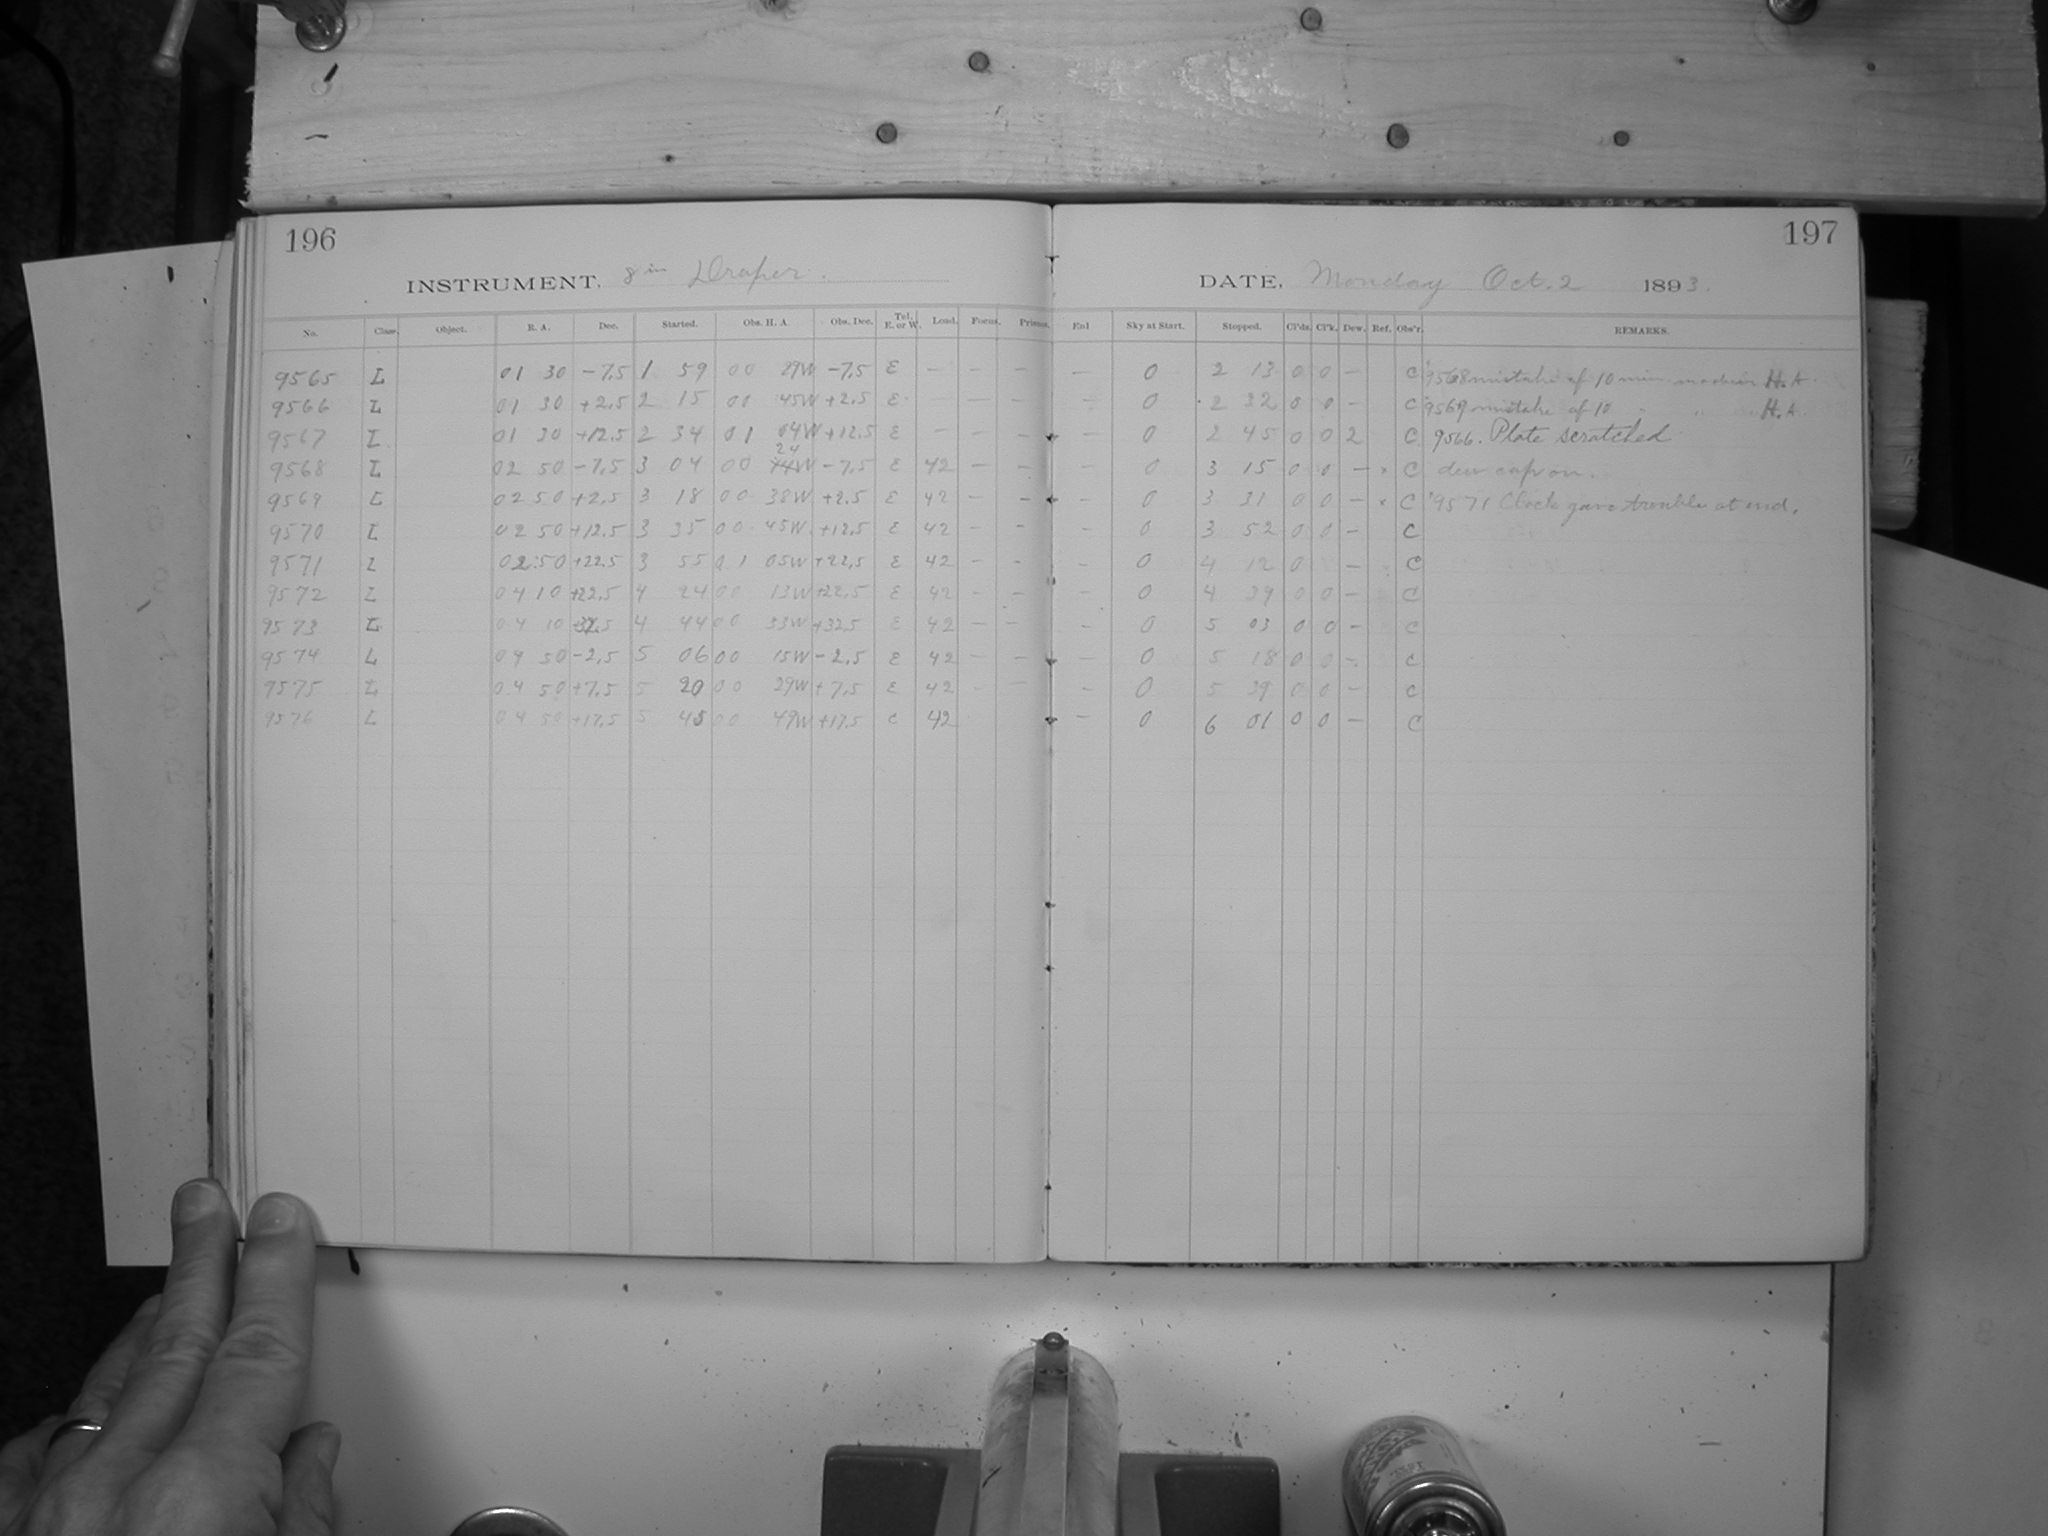 196
INSTRUMENT, 8 in Draper.
No. Class. Object. R. A. Dec. Started. Obs. H. A. Obs. Dec. Tel. E. or W. Load. Focus. Prisms.
9565 L 01 30 -7.5 1 59 00 29W -7.5 E - - -
9566 L 01 30 +2.5 2 15 00 45W +2.5 E - - -
9567 L 01 30 +12.5 2 34 01 04W +12.5 E - - -
24
9568 L 02 50 -7.5 3 04 00 14W -7.5 E 42 - -
9569 L 02 50 +2.5 3 18 00 38W +2.5 E 42 - -
9570 L 02 50 +12.5 3 35 00 45W +12.5 E 42 - -
9571 L 02 50 +22.5 3 55 01 05W +22.5 E 42 - -
9572 L 04 10 +22.5 4 24 00 13W +22.5 E 42 - -
9573 L 04 10 +32.5 4 44 00 33W +32.5 E 42 - -
9574 L 04 50 -2.5 5 06 00 15W -2.5 E 42 - -
9575 L 04 50 +7.5 5 20 00 29W +7.5 E 42 - -
9576 L 04 50 +17.5 5 45 00 49W +17.5 E 42
197
DATE, Monday Oct. 2 1893.
Enl Sky at Start. Stopped. Cl'ds. Cl'k. Dew. Ref. Obs'r. REMARKS.
- 0 2 13 0 0 - C 9568 mistake of 10 min. made in H.A.
- 0 2 32 0 0 - C 9569 mistake of 10 " " H.A.
- 0 2 45 0 0 2 C 9566. Plate scratched
- 0 3 15 0 0 - C dew cap on.
- 0 3 31 0 0 - C 9571 Clock gave trouble at end.
- 0 3 52 0 0 - C
- 0 4 12 0 - C
- 0 4 39 0 0 - C
- 0 5 03 0 0 - C
- 0 5 18 0 0 - C
- 0 5 39 0 0 - C
- 0 6 01 0 0 - C